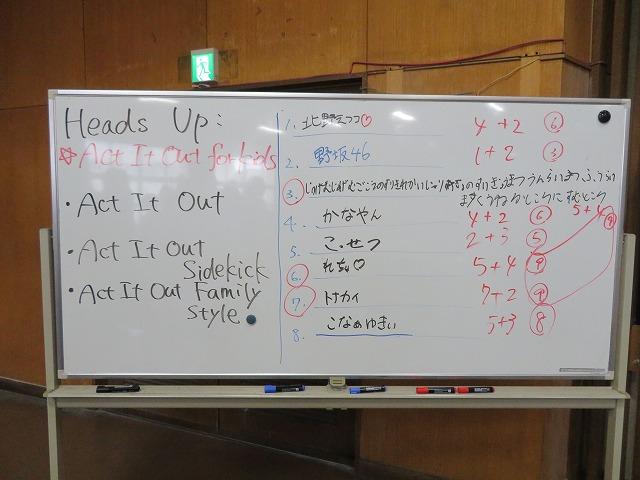 Heads Up:
☆ Act It Out for kids
• Act It Out
• Act It Out
Sidekick
• Act It Out Family
style
1. 北野 ♡ 4+2 ⑥
2. 野坂46 1+2 ③
③. 5+4 ⑨
4. かなやん 4+2 ⑥
5. こ.せつ 2+3 ⑤
⑥. れちゅ♡ 5+4 ⑨
⑦. トナカイ 7+2 ⑨
8. こなめゆきぃ 5+3 ⑧